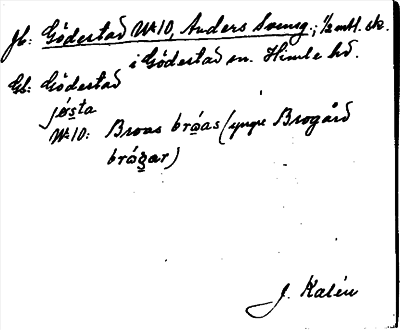 Jb: Gödestad No 10, Anders Svensg.; 1/2 mtl. sk.
i Gödestad sn. Himle hd.
Gb: Gödestad
jösta
No 10: Broas bråas (yngre Brogård
brågar)
J. Kalén